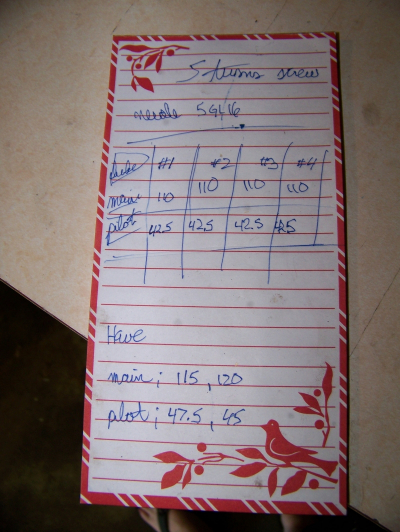 5 turns screw
needle 5GL16
#1 #2 #3 #4
main 110 110 110 110
pilot 42.5 42.5 42.5 42.5
Have
main; 115, 120
pilot; 47.5, 45